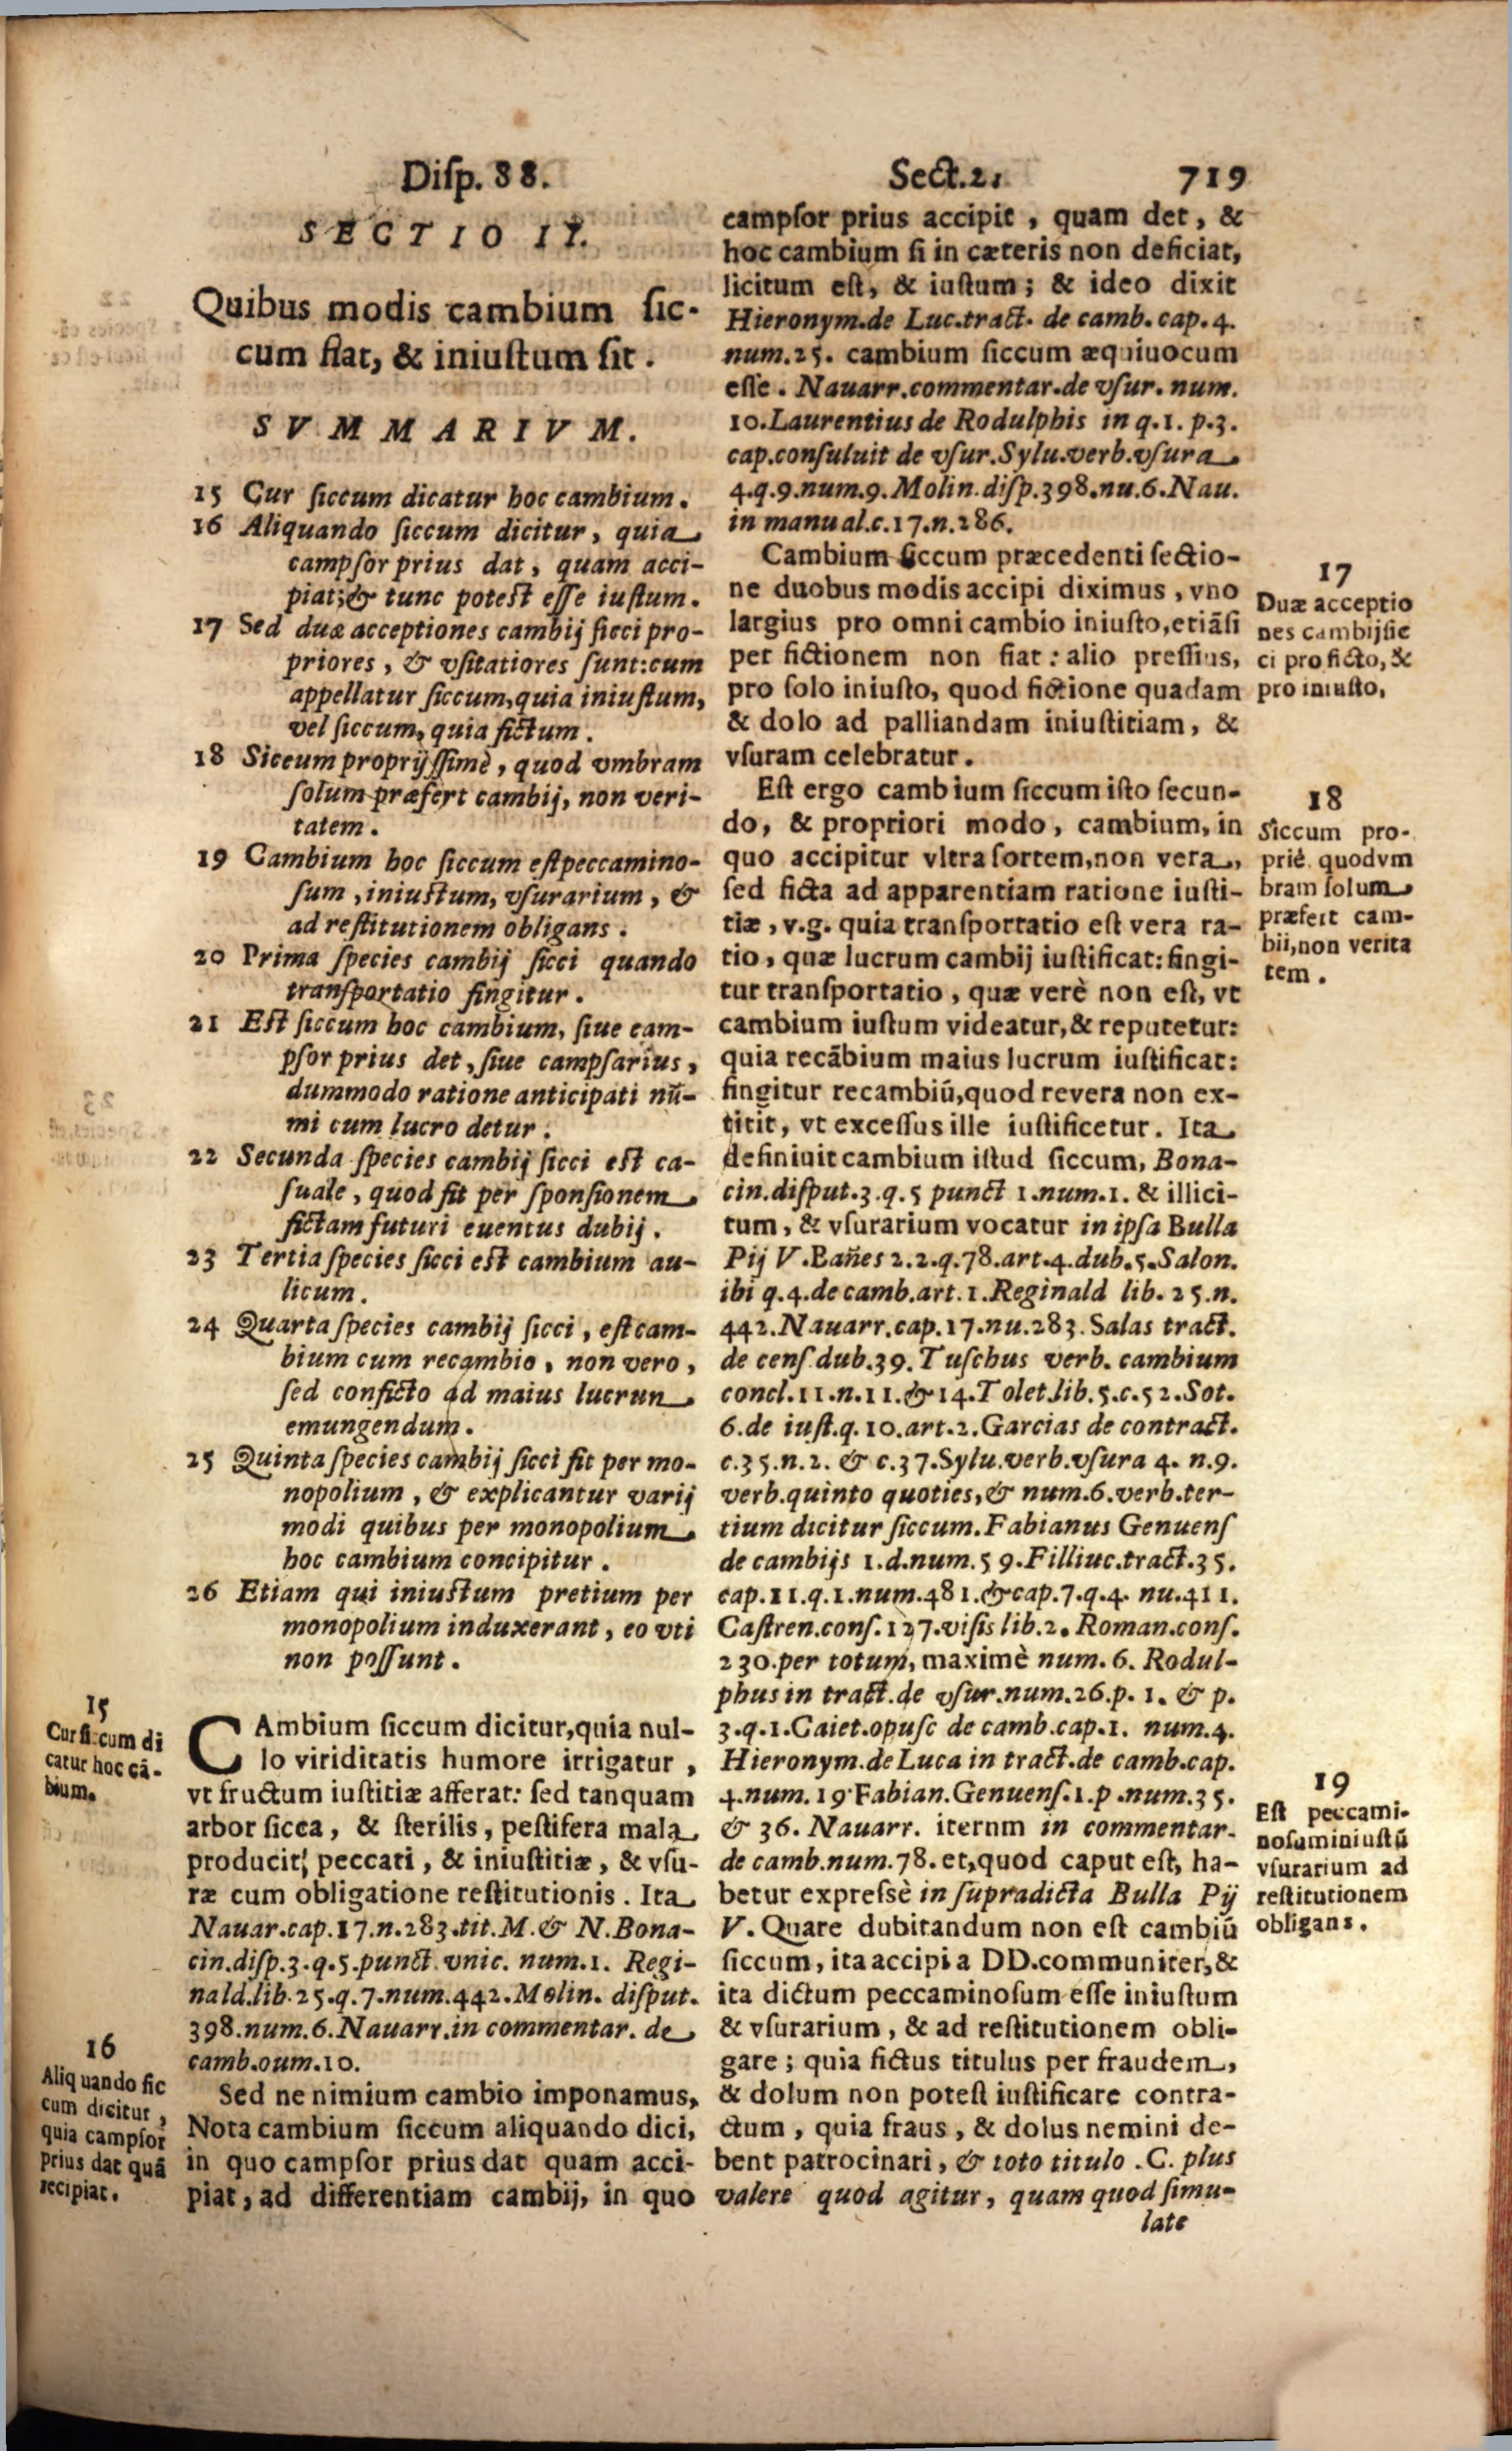 Diſp. 88.
Sect.2.
719
SECTIO II.
Quibus modis cambium ſic-
cum fiat, & iniuſtum ſit.
SVMMARIVM.
15 Cur ſiccum dicatur hoc cambium.
16 Aliquando ſiccum dicitur, quia
campſor prius dat, quam acci-
piat; & tunc poteſt eſſe iuſtum.
17 Sed duæ acceptiones cambij ſicci pro-
priores, & vſitatiores ſunt: cum
appellatur ſiccum, quia iniuſtum,
vel ſiccum, quia fictum.
18 Siccum proprijſſimè, quod vmbram
ſolum præfert cambij, non veri-
tatem.
19 Cambium hoc ſiccum eſt peccamino-
ſum, iniuſtum, vſurarium, &
ad reſtitutionem obligans.
20 Prima ſpecies cambij ſicci quando
tranſportatio fingitur.
21 Eſt ſiccum hoc cambium, ſiue cam-
pſor prius det, ſiue campſarius,
dummodo ratione anticipati nũ-
mi cum lucro detur.
22 Secunda ſpecies cambij ſicci eſt ca-
ſuale, quod fit per ſponſionem
fictam futuri euentus dubij.
23 Tertia ſpecies ſicci eſt cambium au-
licum.
24 Quarta ſpecies cambij ſicci, eſt cam-
bium cum recambio, non vero,
ſed conficto ad maius lucrun
emungendum.
25 Quinta ſpecies cambij ſicci fit per mo-
nopolium, & explicantur varij
modi quibus per monopolium
hoc cambium concipitur.
26 Etiam qui iniuſtum pretium per
monopolium induxerant, eo vti
non poſſunt.
15
Cur ſiccum di
catur hoc cã-
bium.
CAmbium ſiccum dicitur, quia nul-
lo viriditatis humore irrigatur,
vt fructum iuſtitiæ afferat: ſed tanquam
arbor ſicca, & ſterilis, peſtifera mala
producit; peccati, & iniuſtitiæ, & vſu-
ræ cum obligatione reſtitutionis. Ita
Nauar.cap.17.n.283.tit.M.& N.Bona-
cin.diſp.3.q.5.punct.vnic. num.1. Regi-
nald.lib.25.q.7.num.442.Molin. diſput.
398.num.6.Nauarr.in commentar. de
camb.oum.10.
16
Aliquando ſic
cum dicitur,
quia campſor
prius dat quã
recipiat.
Sed ne nimium cambio imponamus,
Nota cambium ſiccum aliquando dici,
in quo campſor prius dat quam acci-
piat, ad differentiam cambij, in quo
campſor prius accipit, quam det, &
hoc cambium ſi in cæteris non deficiat,
licitum eſt, & iuſtum; & ideo dixit
Hieronym.de Luc.tract. de camb. cap.4.
num.25. cambium ſiccum æquiuocum
eſſe. Nauarr.commentar.de vſur. num.
10.Laurentius de Rodulphis in q.1. p.3.
cap.conſuluit de vſur.Sylu.verb.vſura
4.q.9.num.9.Molin.diſp.398.nu.6.Nau.
in manual.c.17.n.286.
Cambium ſiccum præcedenti ſectio-
ne duobus modis accipi diximus, vno
largius pro omni cambio iniuſto, etiãſi
per fictionem non fiat: alio preſſius,
pro ſolo iniuſto, quod fictione quadam
& dolo ad palliandam iniuſtitiam, &
vſuram celebratur.
17
Duæ acceptio
nes cambij ſic
ci pro ficto, &
pro iniuſto,
Eſt ergo cambium ſiccum iſto ſecun-
do, & propriori modo, cambium, in
quo accipitur vltra ſortem, non vera,
ſed ficta ad apparentiam ratione iuſti-
tiæ, v.g. quia tranſportatio eſt vera ra-
tio, quæ lucrum cambij iuſtificat: fingi-
tur tranſportatio, quæ verè non eſt, vt
cambium iuſtum videatur, & reputetur:
quia recãbium maius lucrum iuſtificat:
fingitur recambiũ, quod revera non ex-
titit, vt exceſſus ille iuſtificetur. Ita
definiuit cambium iſtud ſiccum, Bona-
cin.diſput.3.q.5 punct 1.num.1. & illici-
tum, & vſurarium vocatur in ipſa Bulla
Pij V.Bañes 2.2.q.78.art.4.dub.5.Salon.
ibi q.4.de camb.art.1.Reginald lib. 25.n.
442.Nauarr.cap.17.nu.283.Salas tract.
de cenſ dub.39.Tuſchus verb. cambium
concl.11.n.11.& 14.Tolet.lib.5.c.52.Sot.
6.de iuſt.q.10.art.2.Garcias de contract.
c.35.n.2. & c.37.Sylu.verb.vſura 4. n.9.
verb.quinto quoties, & num.6.verb.ter-
tium dicitur ſiccum.Fabianus Genuenſ
de cambijs 1.d.num.59.Filliuc.tract.35.
cap.11.q.1.num.481.& cap.7.q.4. nu.411.
Caſtren.conſ.127.viſis lib.2. Roman.conſ.
230.per totum, maximè num.6. Rodul-
phus in tract.de vſur.num.26.p. 1. & p.
3.q.1.Caiet.opuſc de camb.cap.1. num.4.
Hieronym.de Luca in tract.de camb.cap.
4.num.19.Fabian.Genuenſ.1.p.num.35.
& 36. Nauarr. iternm in commentar.
de camb.num.78. et, quod caput eſt, ha-
betur expreſsè in ſupradicta Bulla Pij
V. Quare dubitandum non eſt cambiũ
ſiccum, ita accipi a DD.communiter, &
ita dictum peccaminoſum eſſe iniuſtum
& vſurarium, & ad reſtitutionem obli-
gare; quia fictus titulus per fraudem,
& dolum non poteſt iuſtificare contra-
ctum, quia fraus, & dolus nemini de-
bent patrocinari, & toto titulo .C. plus
valere quod agitur, quam quod ſimu-
late
18
Siccum pro-
priè quod vm
bram ſolum
præfert cam-
bii, non verita
tem.
19
Eſt peccami-
noſum iniuſtũ
vſurarium ad
reſtitutionem
obligans.